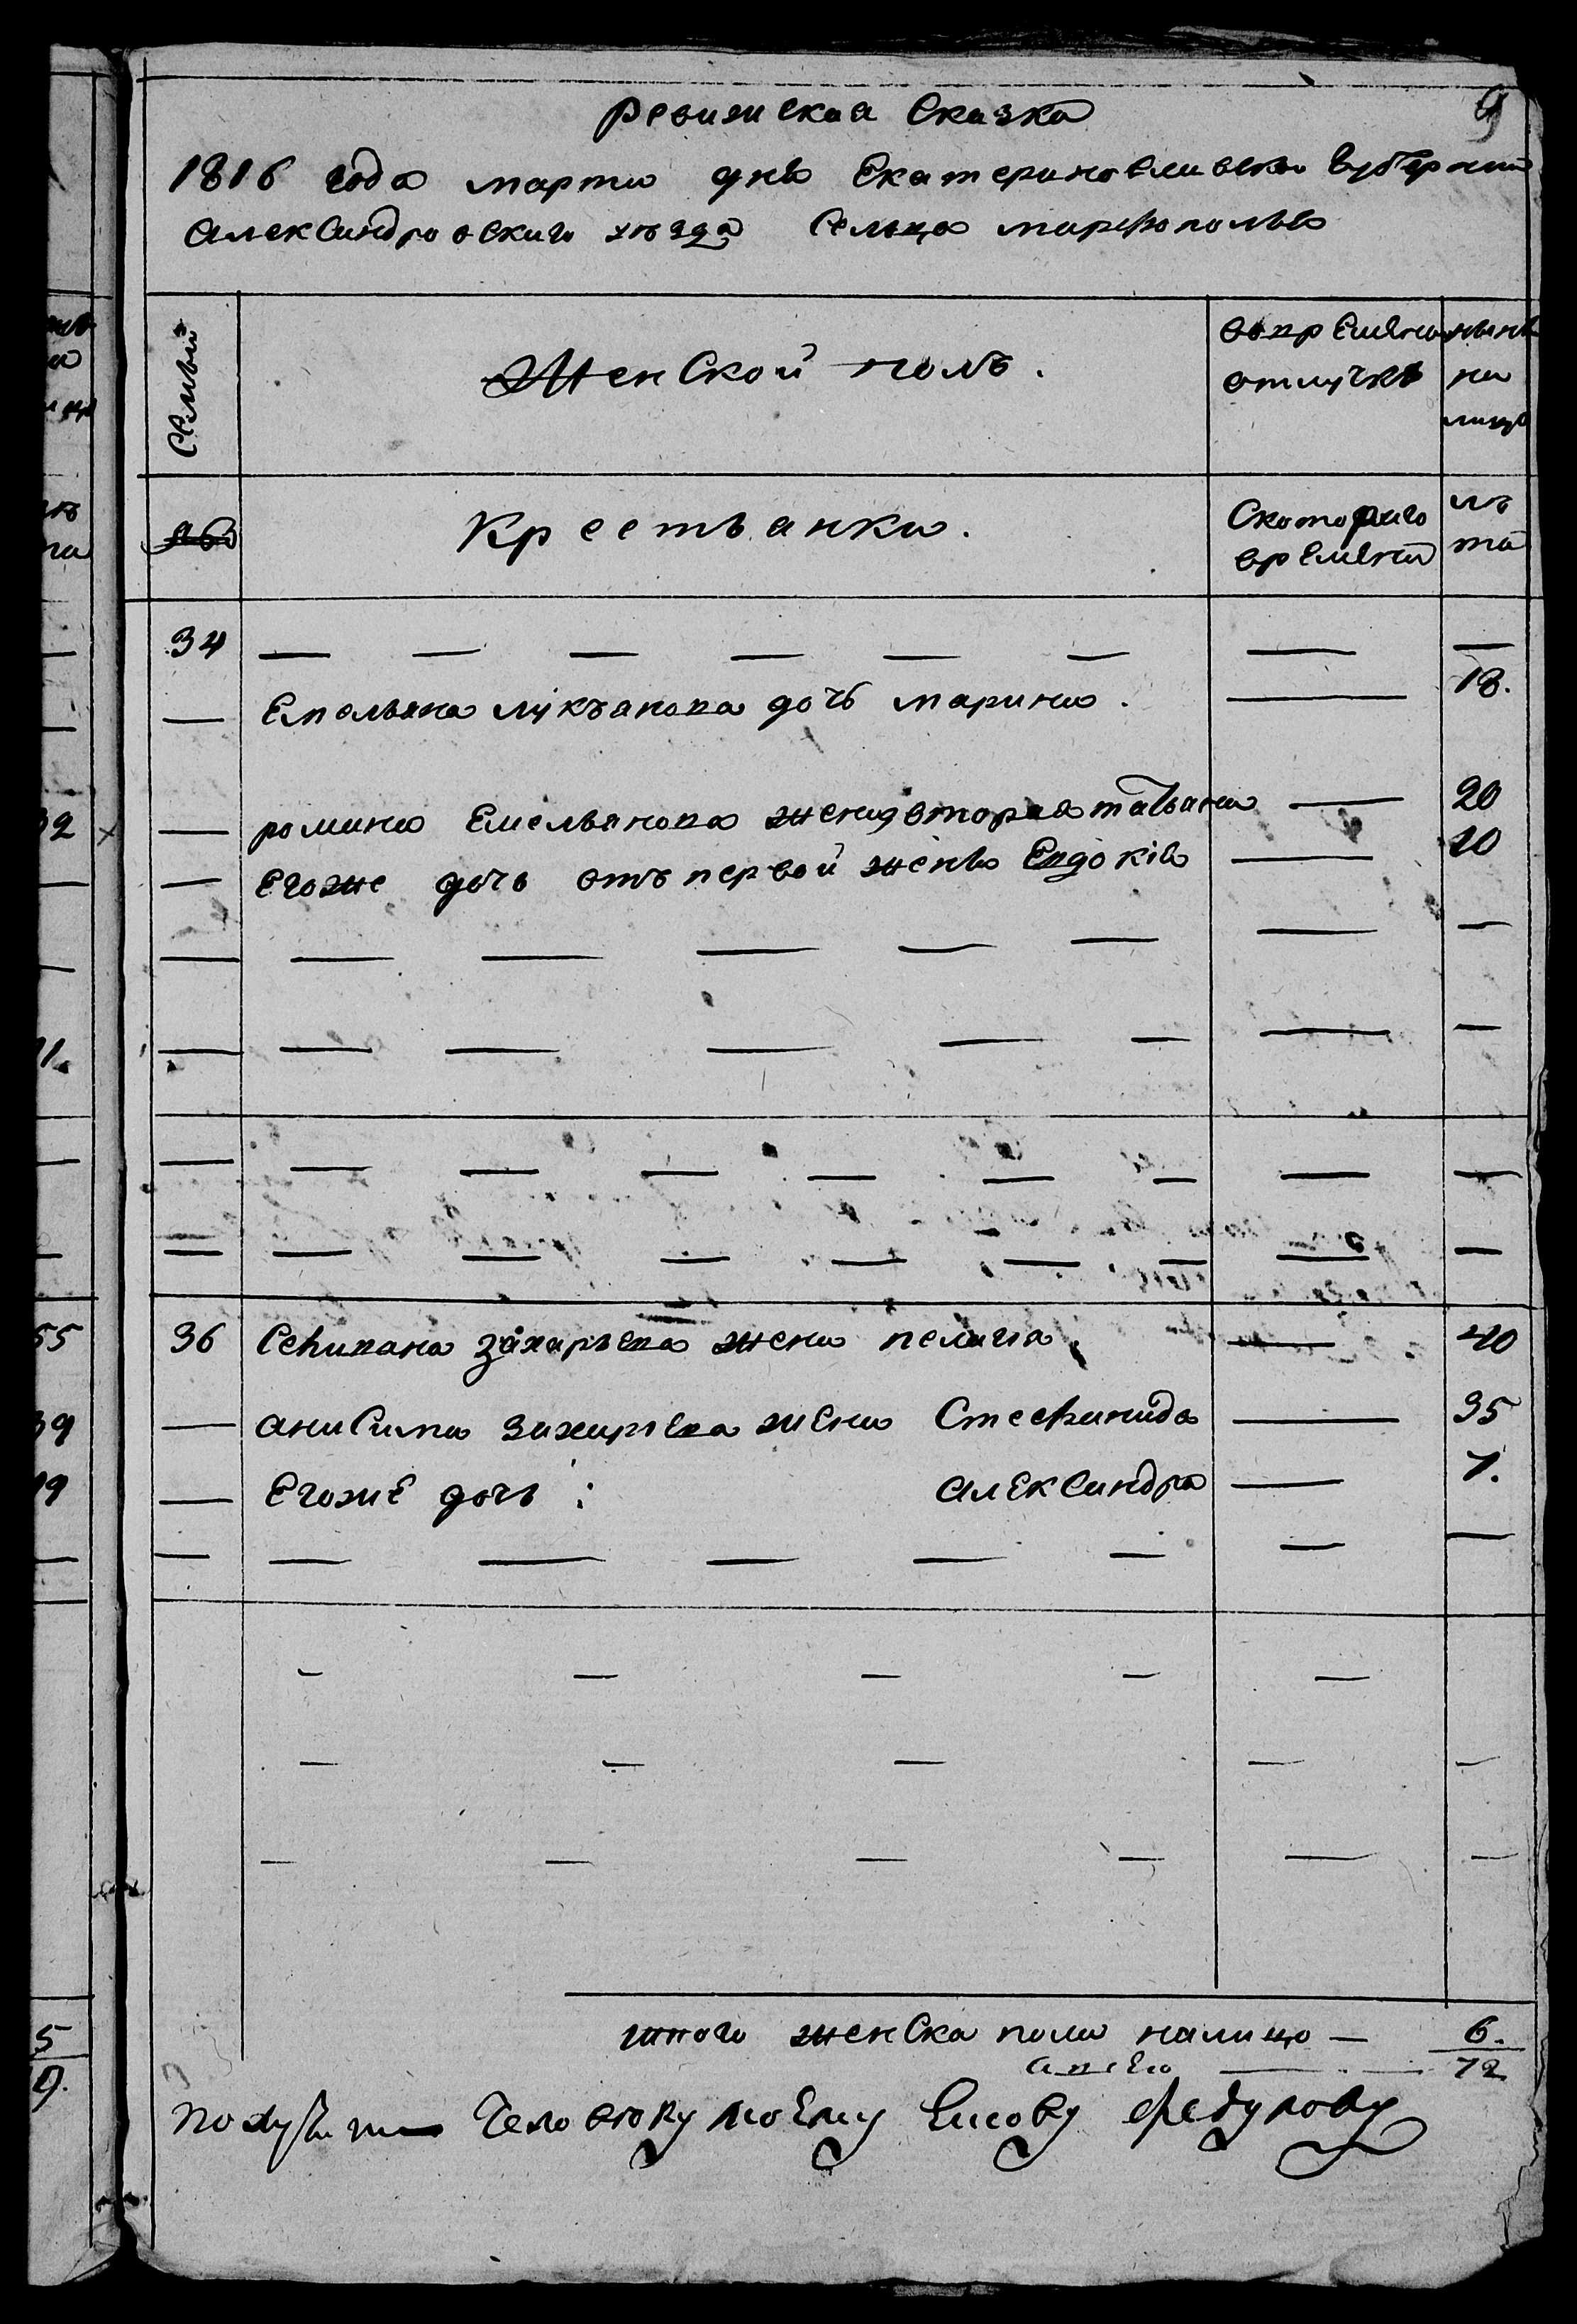 9
ревижская Сказка
1816 года марта дня Екатеринославской Губернии
Александровского уезда Сельца марфополя
Семьи
Женской полъ.
вовремяной отлучке
ныне на лицо
№
Крестьянки.
Скоторого времяни
лъта
34 — — — — — — — —
— Емельяна лукъянова дочь марина. — 18.
— романа Емельянова жена вторая татьяна — 20
— Егоже дочь отъ первой жены Евдокия — 10
— — — — — — — —
— — — — — — — —
— — — — — — — — —
— — — — — — — — —
36 Степана захарьева жена пелагия — 40
— анисима захарьева жена Стефанида — 35
— Егоже дочь: александра — 7.
— — — — — — — —
— — — — —
— — — — —
— — — — — —
итого женска пола налицо — 6.
72
человеку моему Федулову